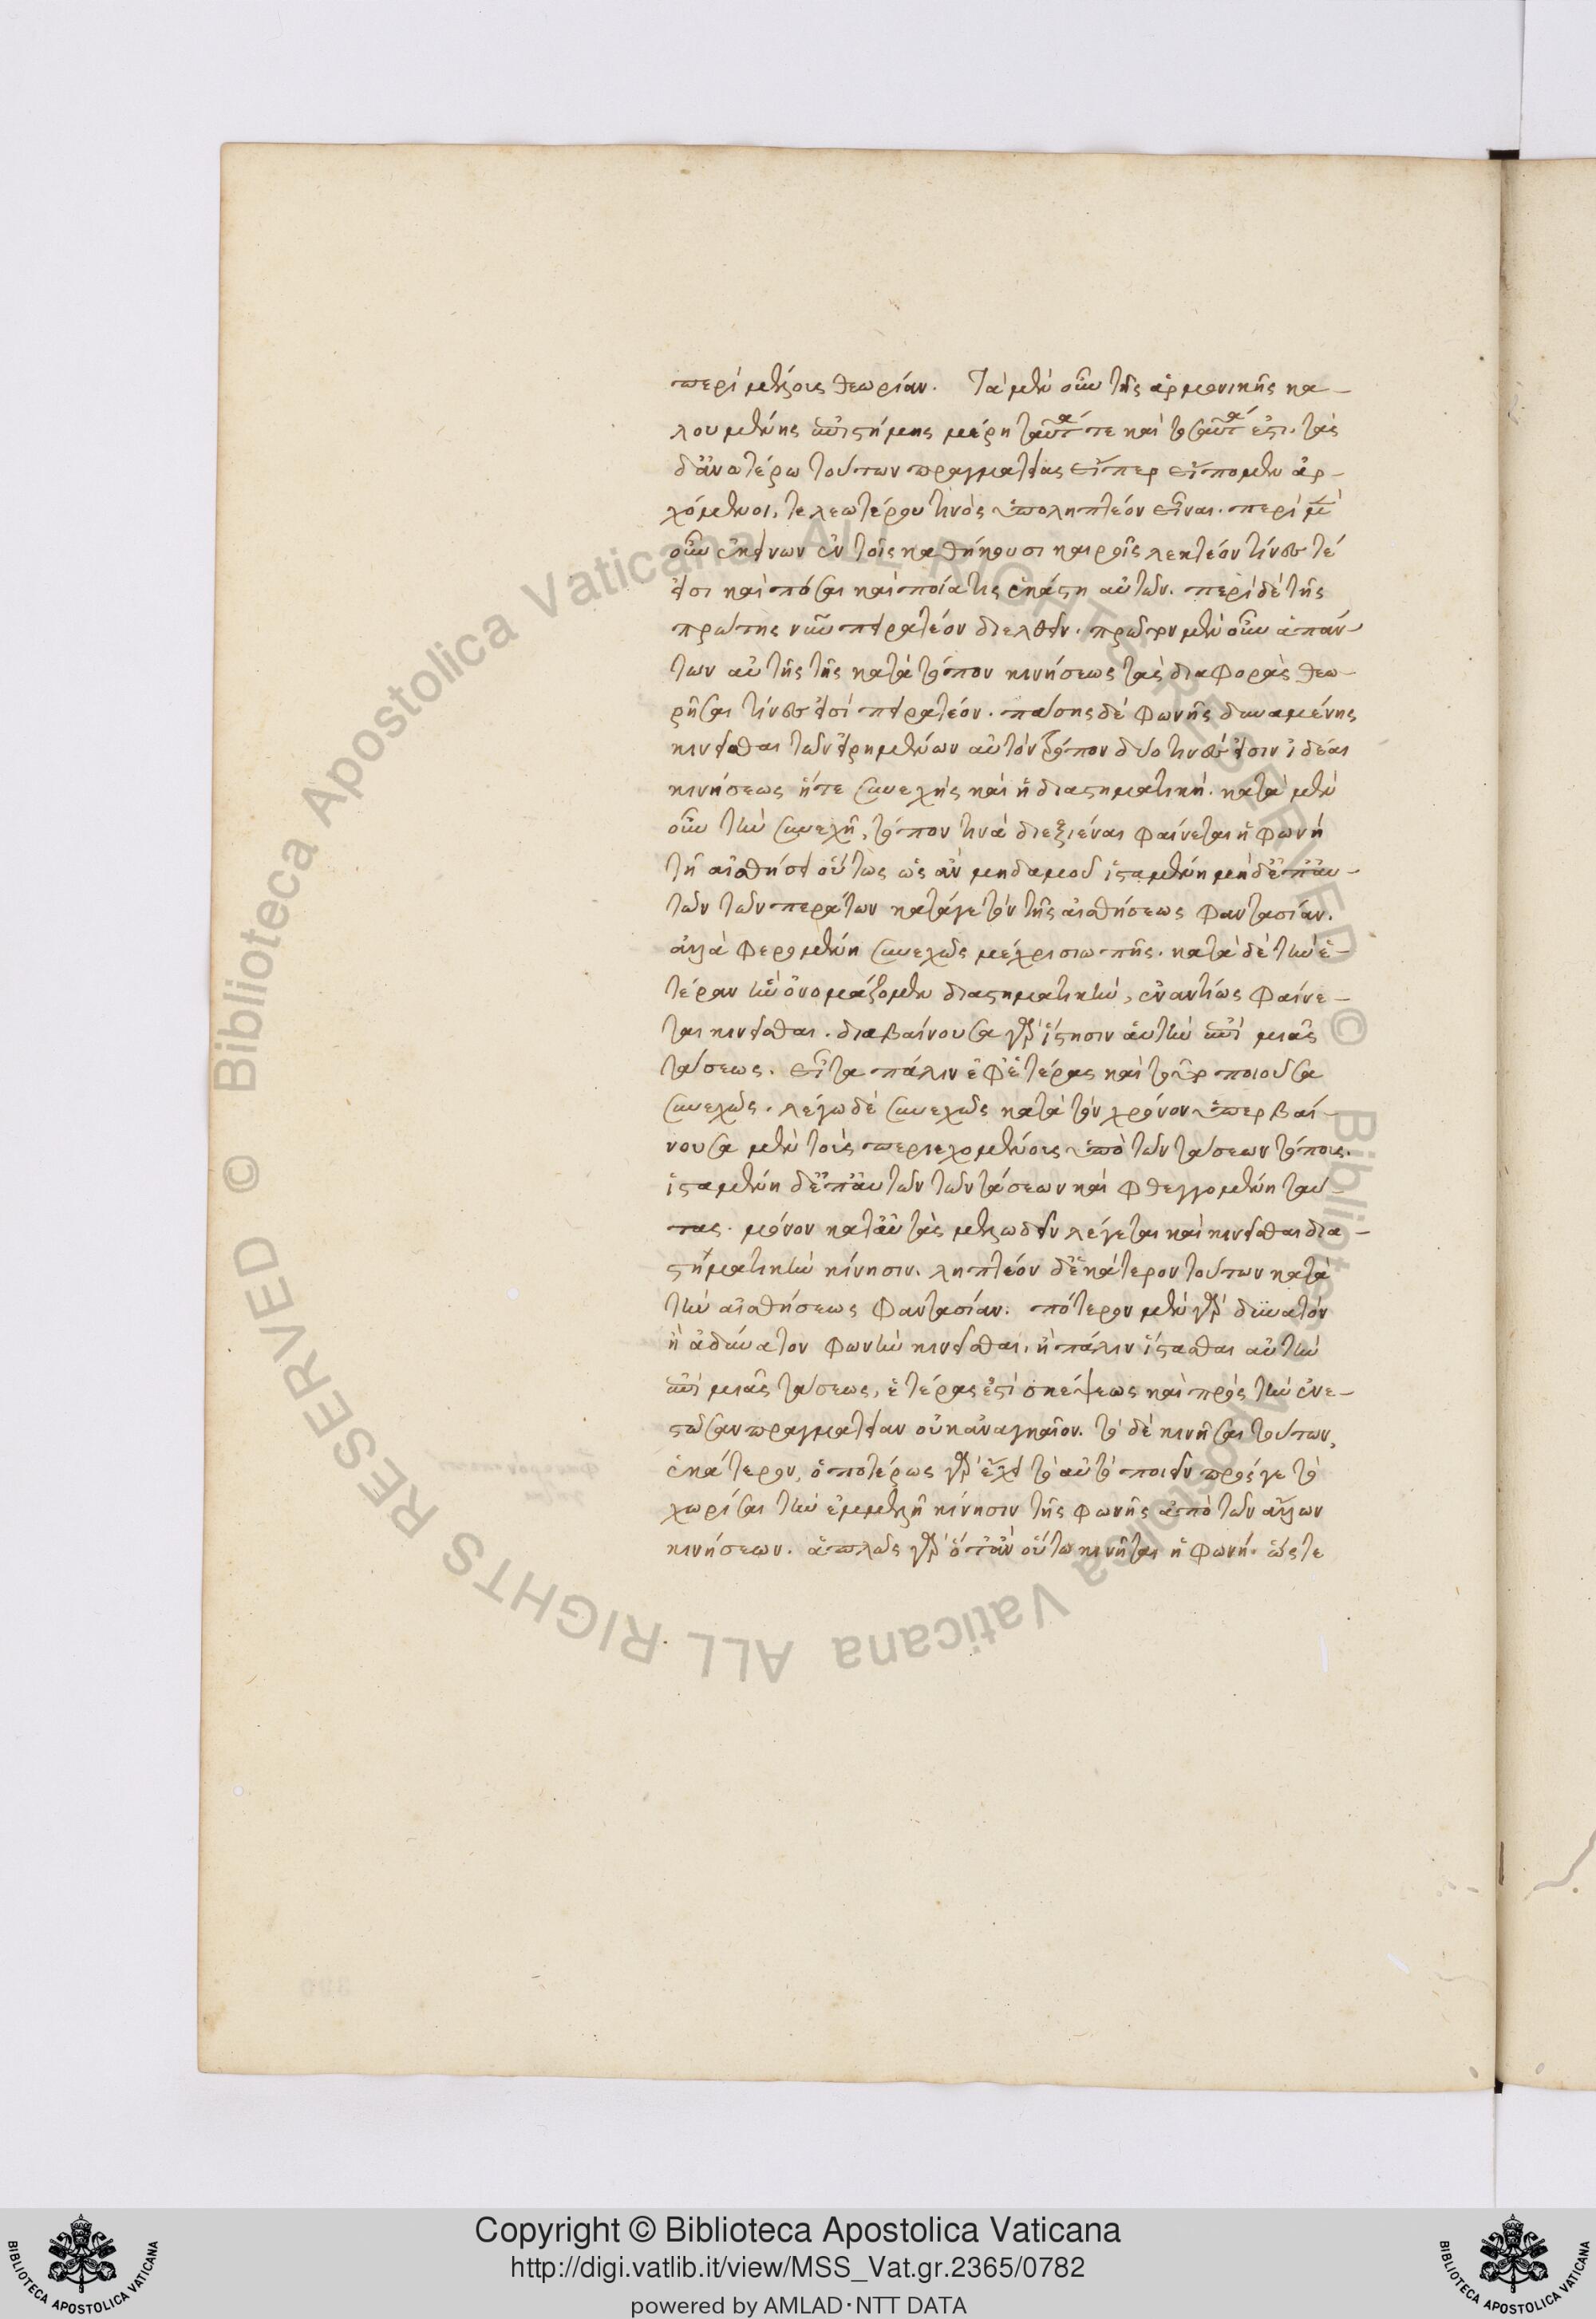 περὶ μέλους θεωρίαν. Τὰ μὲν οὖν τῆς ἁρμονικῆς κα-
λουμένης ἐπιστήμης μέρη ταῦτά τε καὶ τοσαῦτά ἐστι. τὰς
δ' ἀνωτέρω τούτων πραγματείας εἴπερ εἴπομεν ἀρ-
χόμενοι, τελεωτέρου τινὸς ὑποληπτέον εἶναι. περὶ μὲν
οὖν ἐκείνων ἐν τοῖς καθήκουσι καιροῖς λεκτέον τίνες τέ
εἰσι καὶ πόσαι καὶ ποία τις ἑκάστη αὐτῶν. περὶ δὲ τῆς
πρώτης νῦν πειρατέον διελθεῖν. πρῶτον μὲν οὖν ἁπάν-
των αὐτῆς τῆς κατὰ τόπον κινήσεως τὰς διαφορὰς θεω-
ρῆσαι τίνες εἰσὶ πειρατέον. πάσης δὲ φωνῆς δυναμένης
κινεῖσθαι τὸν εἰρημένον αὐτὸν τρόπον δύο τινές εἰσιν ἰδέαι
κινήσεως ἥ τε συνεχὴς καὶ ἡ διαστηματική. κατὰ μὲν
οὖν τὴν συνεχῆ, τόπον τινὰ διεξιέναι φαίνεται ἡ φωνὴ
τῇ αἰσθήσει οὕτως ὡς ἂν μηδαμοῦ ἱσταμένη μὴ δ' ἐπ' αὐ-
τῶν τῶν περάτων κατά γε τὴν τῆς αἰσθήσεως φαντασίαν.
ἀλλὰ φερομένη συνεχῶς μέχρι σιωπῆς. κατὰ δὲ τὴν ἑ-
τέραν ἣν ὀνομάζομεν διαστηματικὴν, ἐναντίως φαίνε-
ται κινεῖσθαι. διαβαίνουσα γὰρ ἵστησιν αὑτὴν ἐπὶ μιᾶς
τάσεως. εἶτα πάλιν ἐφ' ἑτέρας καὶ τοῦτο ποιοῦσα
συνεχῶς. λέγω δὲ συνεχῶς κατὰ τὸν χρόνον ὑπερβαί-
νουσα μὲν τοὺς περιεχομένους ὑπὸ τῶν τάσεων τόπους.
ἱσταμένη δ' ἐπ' αὐτῶν τῶν τάσεων καὶ φθεγγομένη ταύ-
τας. μόνον κατ' αὐτὰς μελῳδεῖν λέγεται καὶ κινεῖσθαι δια-
στηματικὴν κίνησιν. ληπτέον δ' ἑκάτερον τούτων κατὰ
τὴν αἰσθήσεως φαντασίαν. πότερον μὲν γὰρ δυνατὸν
ἢ ἀδύνατον φωνὴν κινεῖσθαι, ἢ πάλιν ἵστασθαι αὐτὴν
ἐπὶ μιᾶς τάσεως, ἑτέρας ἐστὶ σκέψεως καὶ πρὸς τὴν ἐνε-
στῶσαν πραγματείαν οὐκ ἀναγκαῖον. τὸ δὲ κινῆσαι τούτων,
ἑκάτερον, ὁποτέρως γὰρ ἔχει τὸ αὐτὸ ποιεῖν πρός γε τὸ
χωρίσαι τὴν ἐμμελῆ κίνησιν τῆς φωνῆς ἀπὸ τῶν ἄλλων
κινήσεων. ἁπλῶς γὰρ ὅταν οὕτω κινῆται ἡ φωνή. ὥστε
Copyright © Biblioteca Apostolica Vaticana
http://digi.vatlib.it/view/MSS_Vat.gr.2365/0782
powered by AMLAD·NTT DATA
© Biblioteca Apostolica Vaticana ALL RIGHTS RESERVED
© Biblioteca Apostolica Vaticana ALL RIGHTS RESERVED
BIBLIOTECA APOSTOLICA VATICANA
BIBLIOTECA APOSTOLICA VATICANA